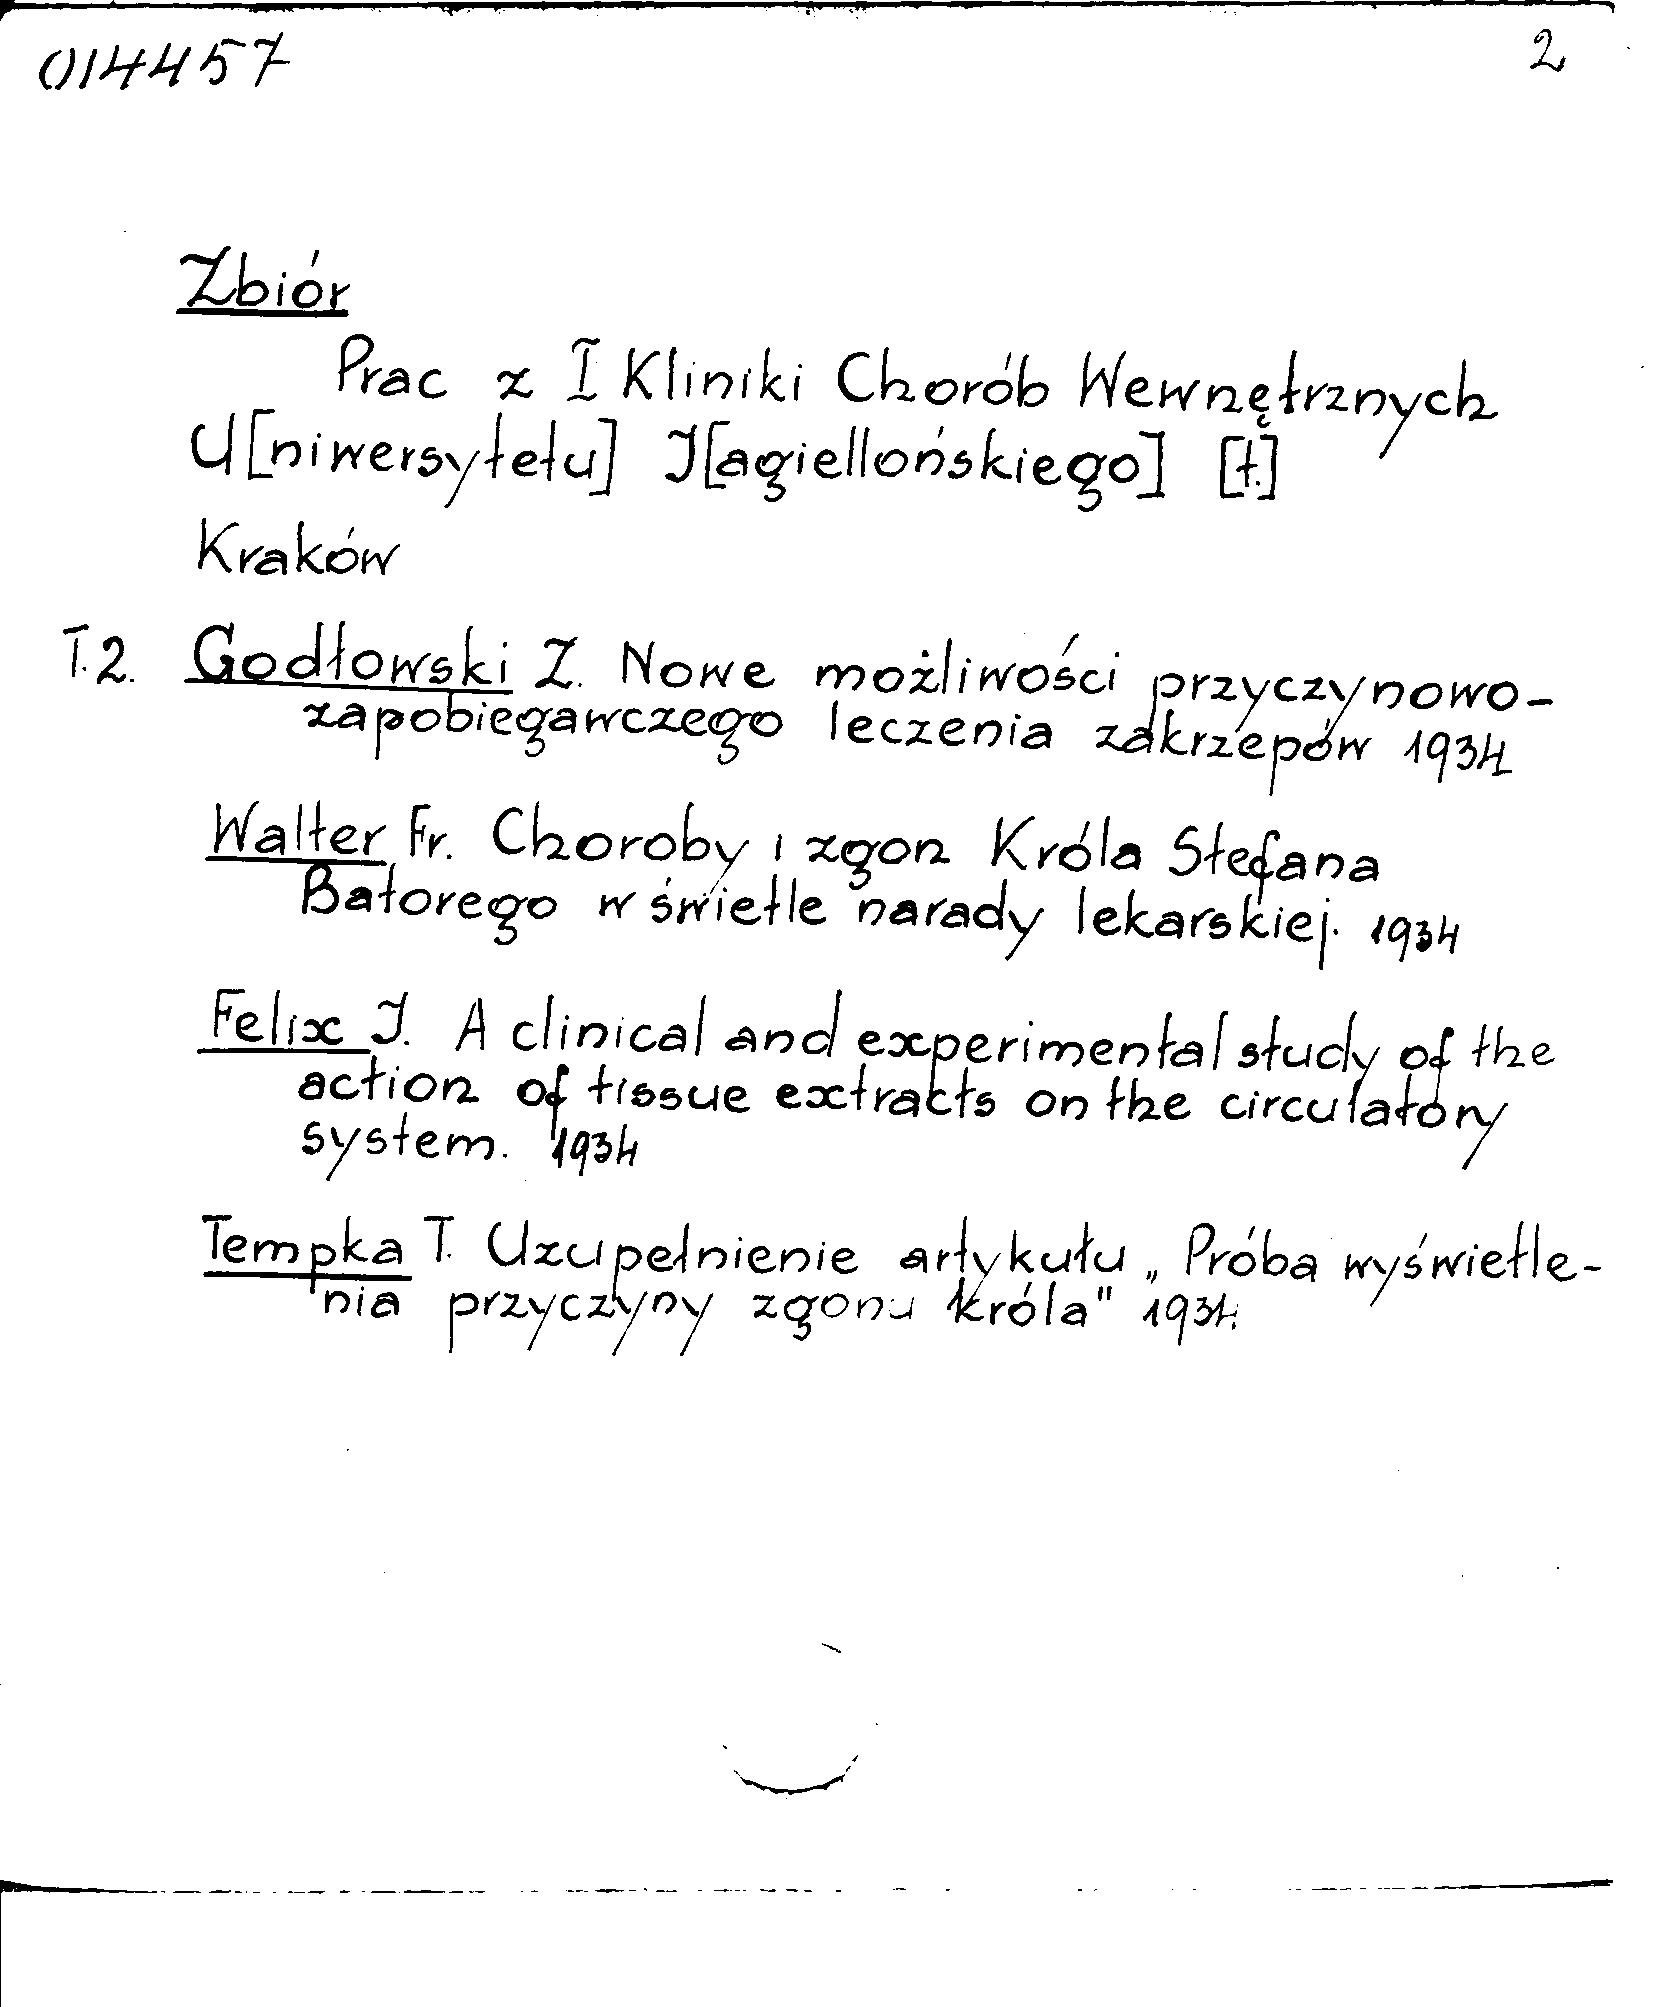 014457 2
Zbiór
Prac z I Kliniki Chorób Wewnętrznych
U[niwersytetu] J[agiellońskiego] [t.]
Kraków
T.2. Godłowski Z. Nowe możliwości przyczynowo-
zapobiegawczego leczenia zakrzepów 1934
Walter Fr. Choroby i zgon Króla Stefana
Batorego w świetle narady lekarskiej. 1934
Felix J. A clinical and experimental study of the
action of tissue extracts on the circulatory
system. 1934
Tempka T. Uzupełnienie artykułu „Próba wyświetle-
nia przyczyny zgonu króla" 1934.